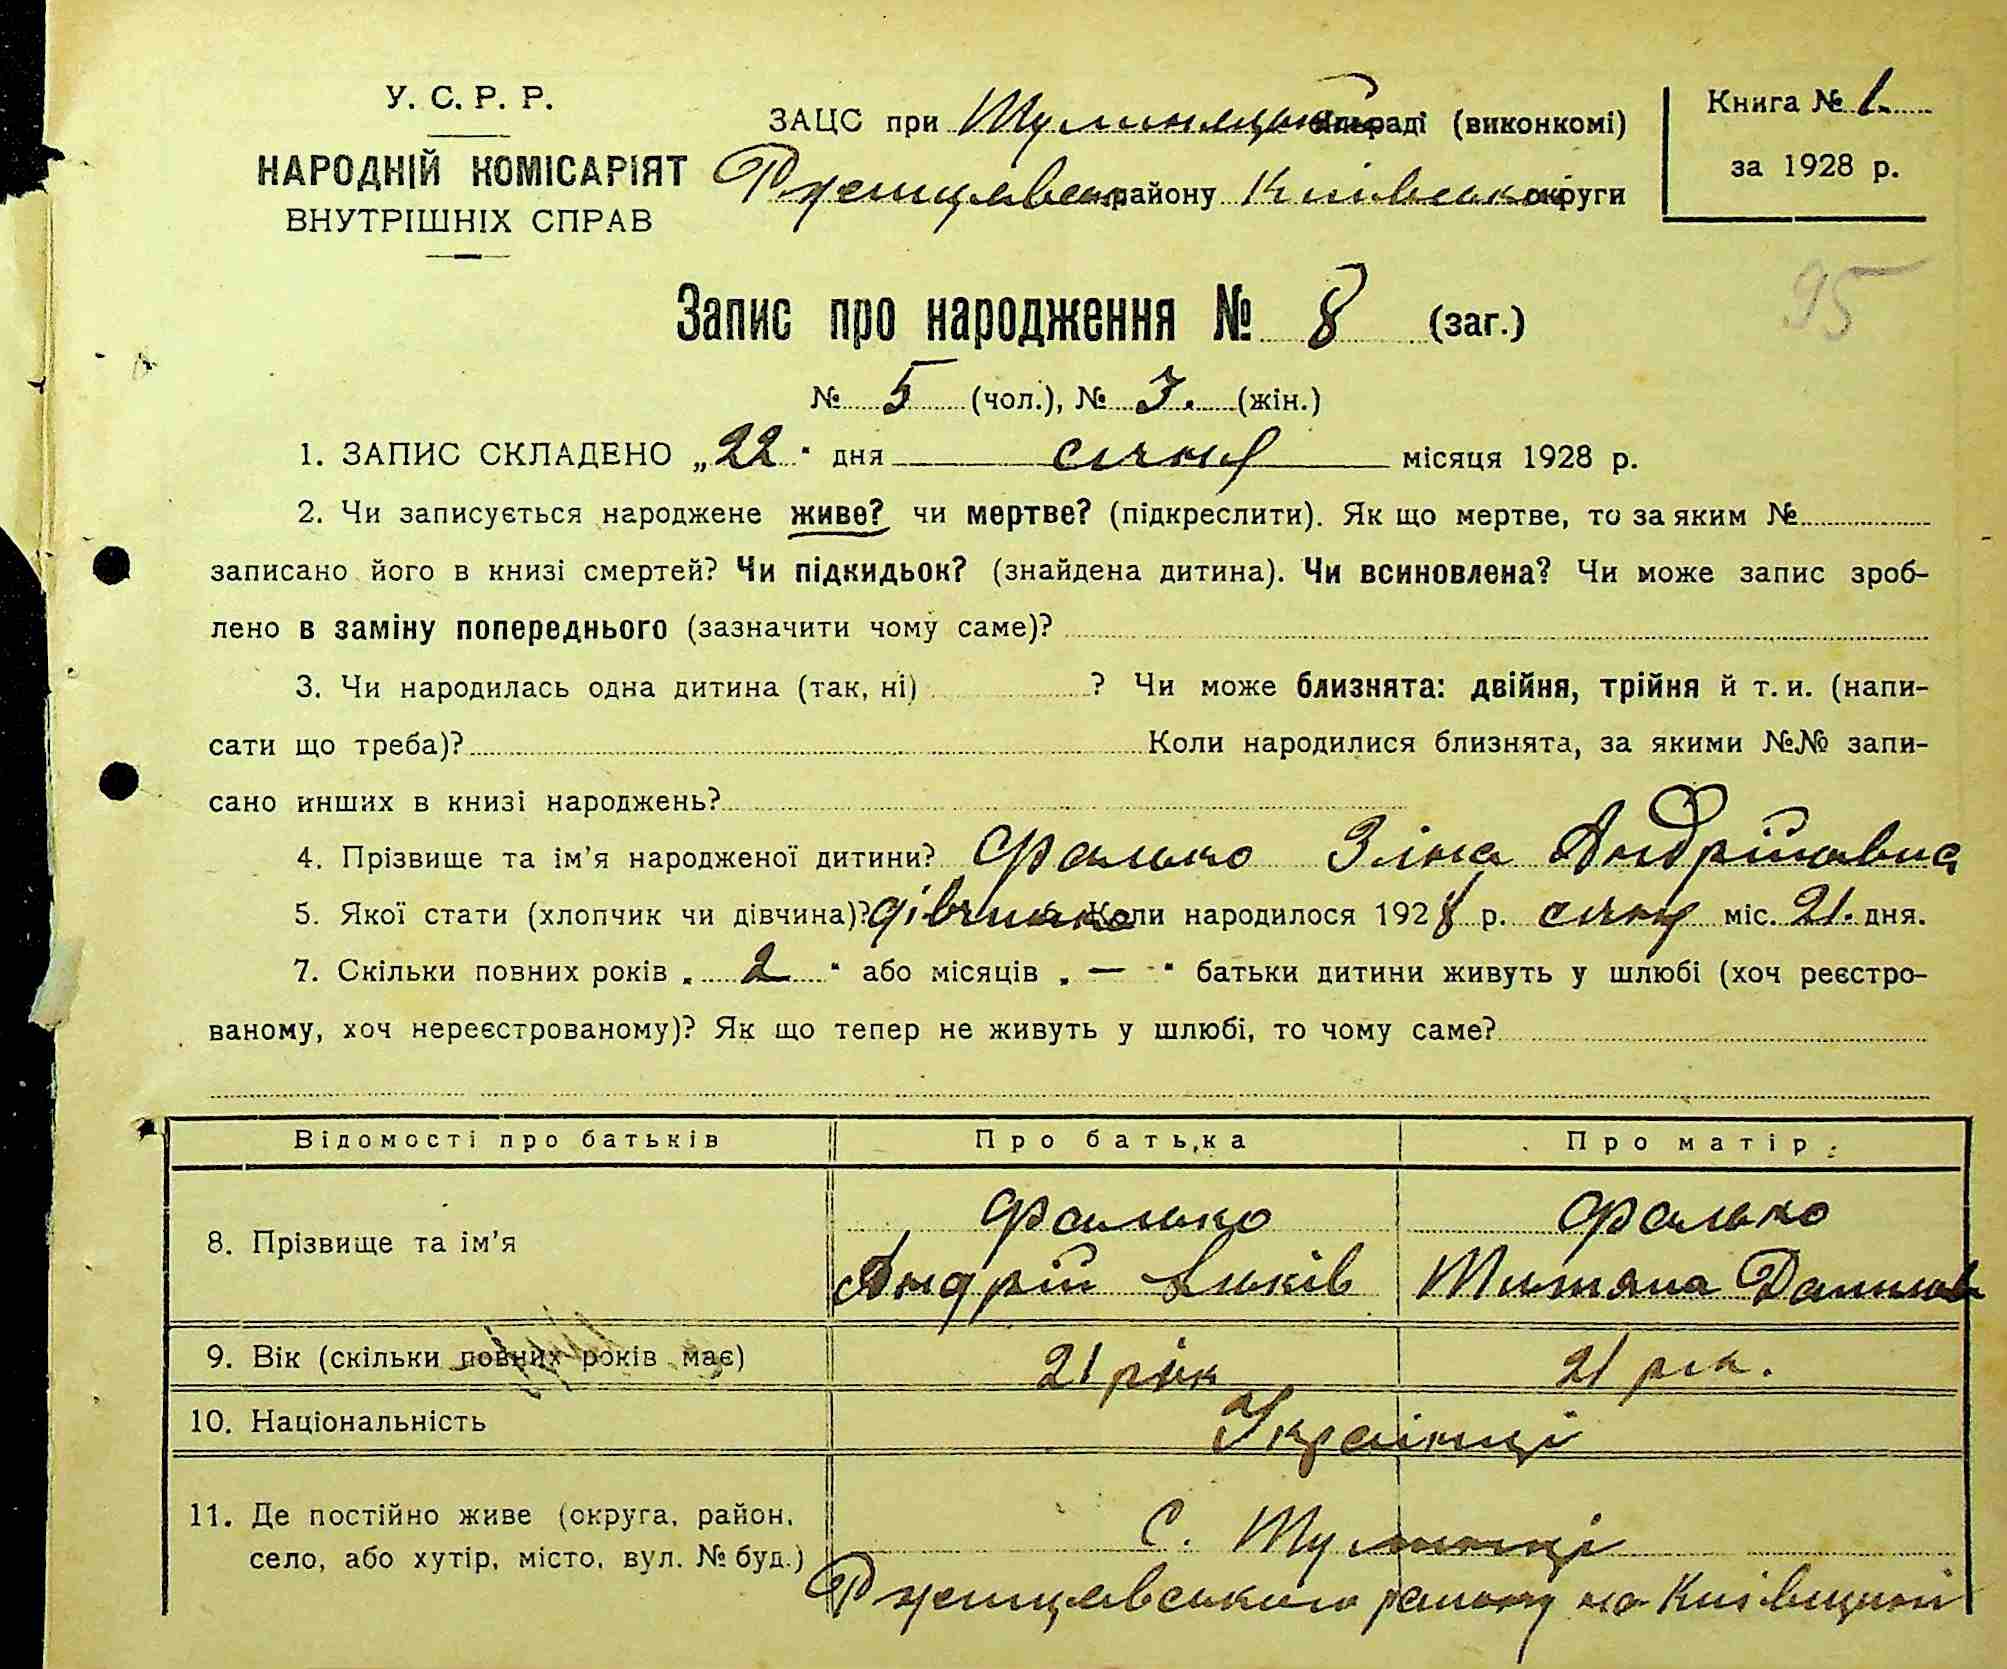 У. С. Р. Р.
НАРОДНІЙ КОМІСАРІЯТ
ВНУТРІШНІХ СПРАВ
ЗАЦС при сільраді (виконкомі)
району Київської округи
Книга № 1
за 1928 р.
95
Запис про народження № 8 (заг.)
№ 5 (чол.), № 3. (жін.)
1. ЗАПИС СКЛАДЕНО „22" дня січня місяця 1928 р.
2. Чи записується народжене живе? чи мертве? (підкреслити). Як що мертве, то за яким №
записано його в книзі смертей? Чи підкидьок? (знайдена дитина). Чи всиновлена? Чи може запис зроб-
лено в заміну попереднього (зазначити чому саме)?
3. Чи народилась одна дитина (так, ні) ? Чи може близнята: двійня, трійня й т. и. (напи-
сати що треба)? Коли народилися близнята, за якими №№ запи-
сано инших в книзі народжень?
4. Прізвище та ім'я народженої дитини? Фалько Зіна Андріївна
5. Якої стати (хлопчик чи дівчина)? дівчинка Коли народилося 1928 р. січня міс. 21. дня.
7. Скільки повних років „ 2 " або місяців „ — " батьки дитини живуть у шлюбі (хоч реєстро-
ваному, хоч нереєстрованому)? Як що тепер не живуть у шлюбі, то чому саме?
Відомості про батьків Про батька Про матір
8. Прізвище та ім'я
Фалько Фалько
Андрій Данилов
9. Вік (скільки повних років має) 21 рік 21 рік.
10. Національність Українці
11. Де постійно живе (округа, район,
село, або хутір, місто, вул. № буд.)
С.
району на Київщині